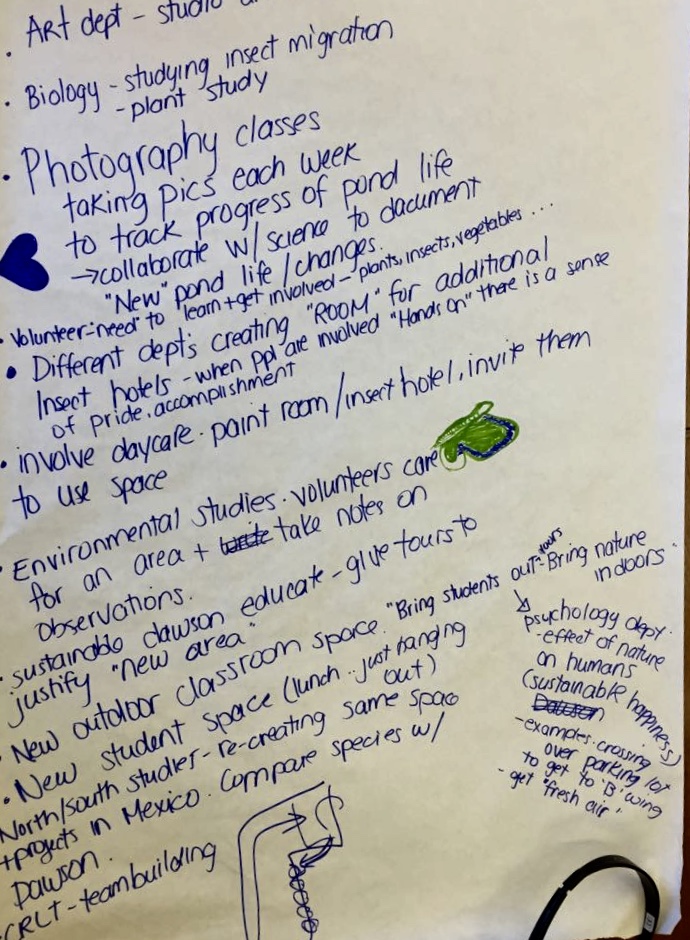 • Art dept - studio
• Biology - studying insect migration
- plant study
• Photography classes
taking pics each week
to track progress of pond life
→ collaborate w/ science to dacument
"New" pond life / changes.
• Volunteer - need to learn + get involved - plants, insects, vegetables ...
• Different dept's creating "ROOM" for additional
Insect hotels - when ppl are involved "Hands On" there is a sense
of pride, accomplishment
• involve daycare. paint room / insect hotel, invite them
to use space
• Environmental studies. volunteers care
for an area + take notes on
observations.
• sustainable dawson educate - give tours to
justify "new area"
• New outdoor classroom space. "Bring students out - Bring nature
tours
indoors.
• New student space (lunch. just hanging
out)
North/south studies - re-creating same space
+ projects in Mexico. Compare species w/
Dawson.
CRLT - teambuilding
psychology dept.
- effect of nature
on humans
(sustainable happiness)
Dawson
- examples. crossing
over parking lot
to get to 'B' wing
- get "fresh air"